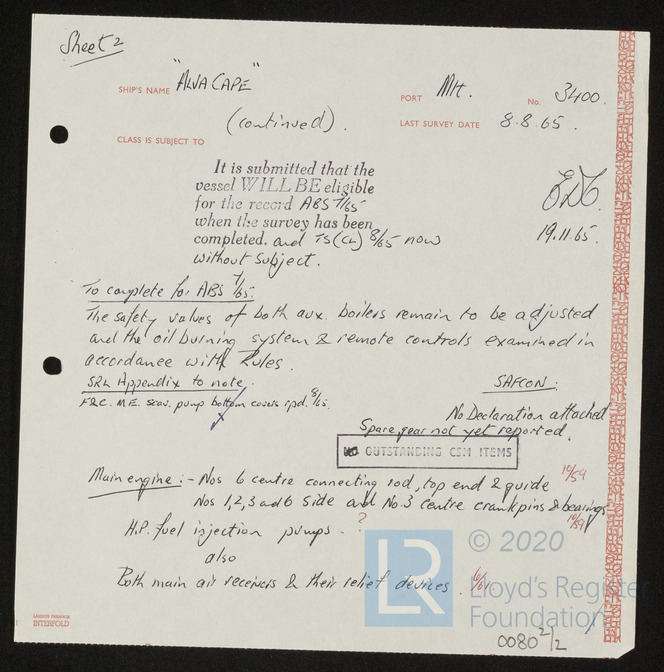 Sheet 2
SHIP'S NAME "ALVA CAPE"
PORT Mtl. No. 3400.
(continued).
LAST SURVEY DATE 8.8.65.
CLASS IS SUBJECT TO
It is submitted that the
vessel WILL BE eligible
for the record ABS 7/65
when the survey has been
completed. and TS(CL) 8/65 now
without subject.
19.11.65.
To complete for ABS 7/65:
The safety valves of both aux. boilers remain to be adjusted
and the oil burning system & remote controls examined in
accordance with Rules.
SRL Appendix to note.
F.&C. M.E. scav. pump bottom covers rpd. 8/65.
SAFCON:
No Declaration attached
Spare gear not yet reported.
NO OUTSTANDING CSM ITEMS
Main engine:- Nos 6 centre connecting rod, top end & guide 10/59
Nos 1,2,3 and 6 side and No.3 centre crankpins & bearings 10/59
H.P. fuel injection pumps. ?
also
Both main air receivers & their relief devices.
LR
© 2020
Lloyd's Register
Foundation
LAMSON PARAGON
INTERFOLD
0080 2/2